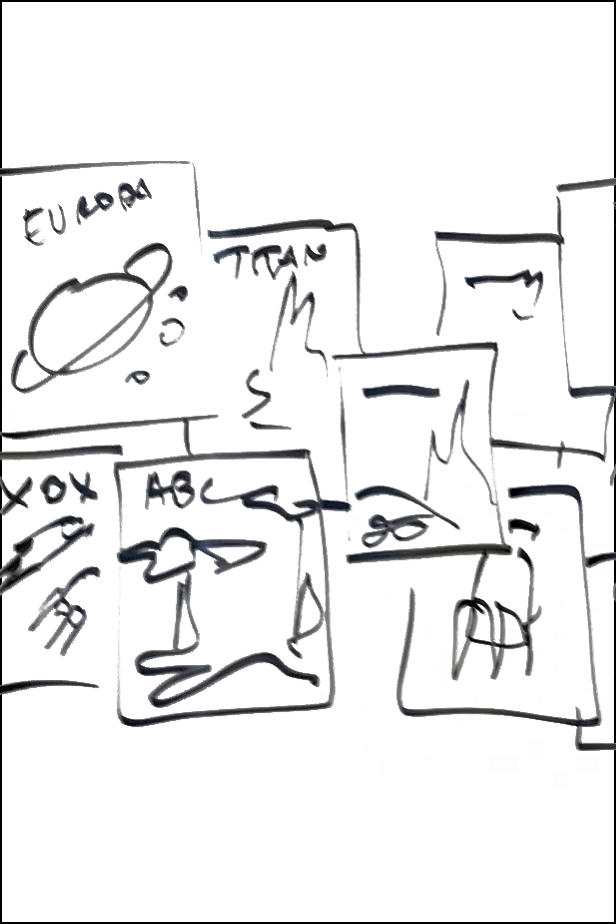 EUROPA
TITAN
XOX
ABC